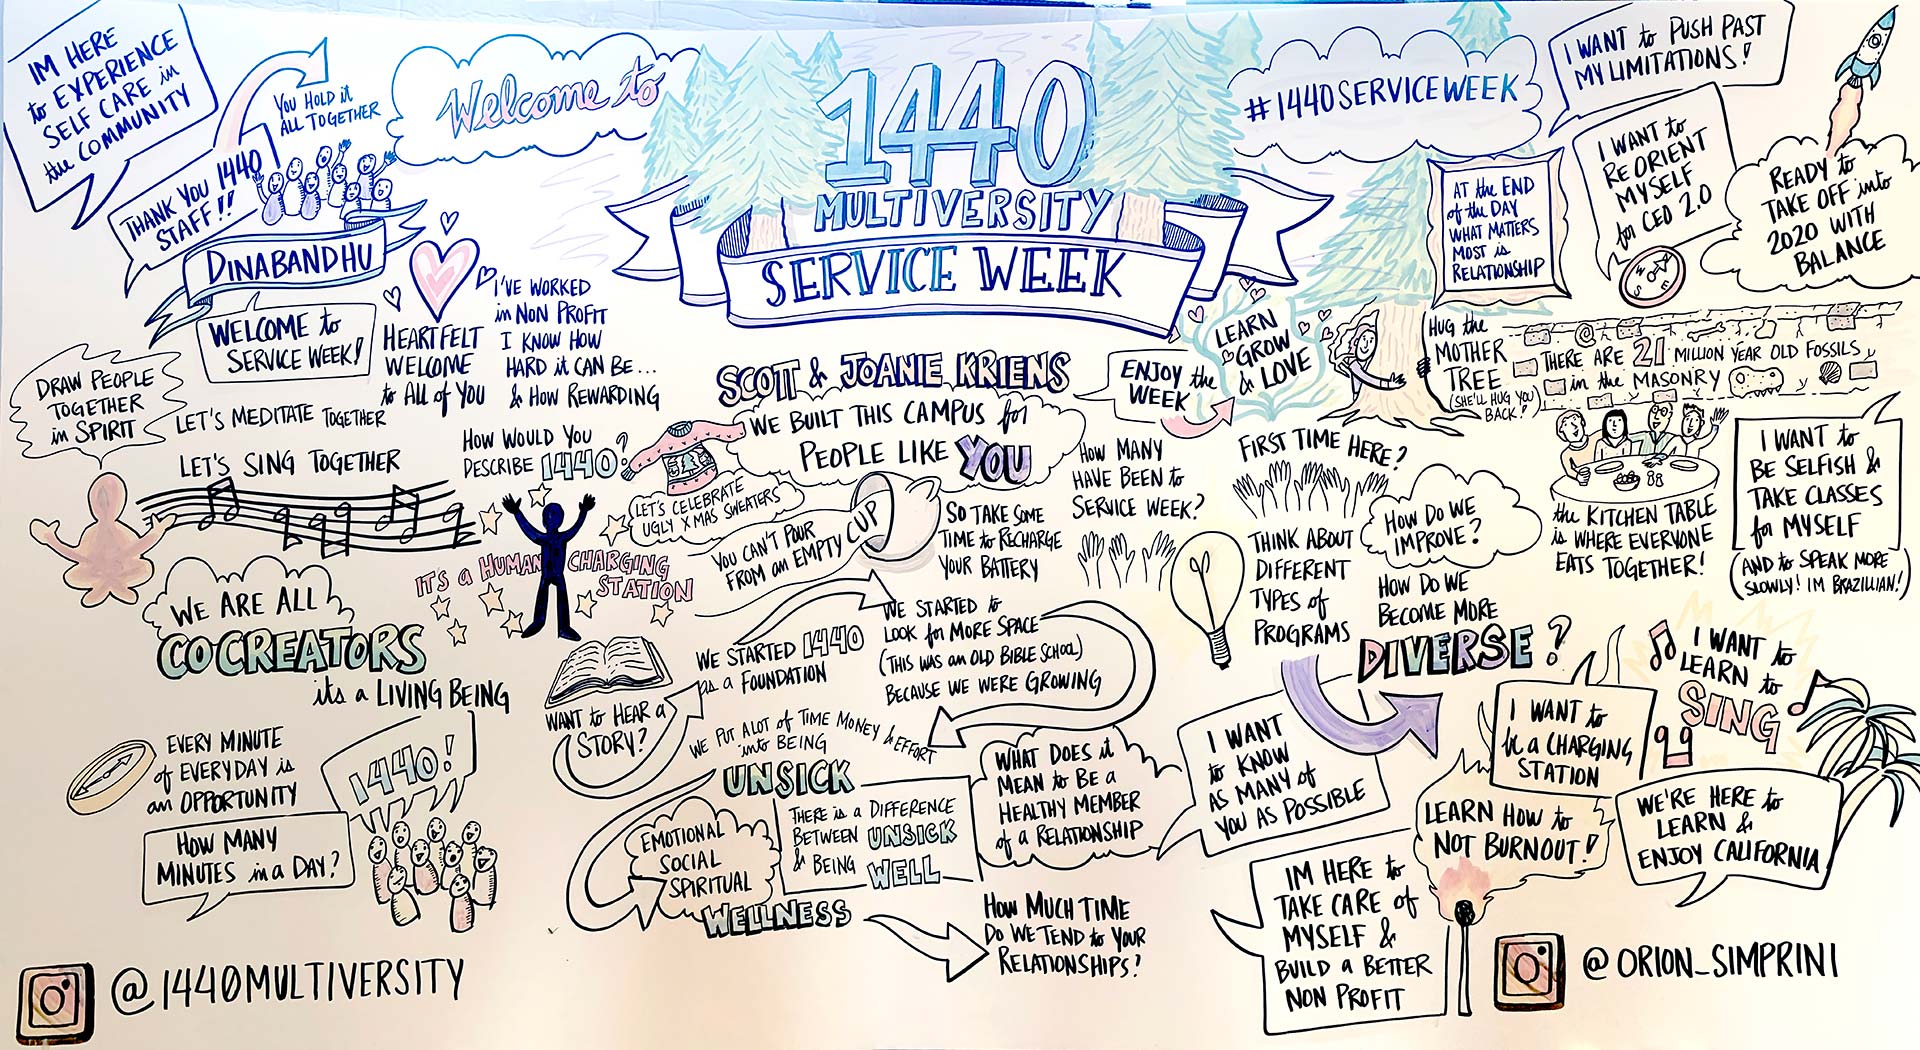 IM HERE
to EXPERIENCE
SELF CARE in
the COMMUNITY
YOU HOLD it
ALL TOGETHER
THANK YOU 1440
STAFF!!
DINABANDHU
WELCOME to
SERVICE WEEK!
HEARTFELT
WELCOME
to All of YOU
I'VE WORKED
in NON PROFIT
I KNOW HOW
HARD it CAN BE...
& HOW REWARDING
Welcome to
1440
MULTIVERSITY
SERVICE WEEK
#1440SERVICEWEEK
I WANT to PUSH PAST
MY LIMITATIONS!
I WANT to
RE ORIENT
MYSELF
for CEO 2.0
W
S
E
READY to
TAKE OFF into
2020 WITH
BALANCE
AT the END
of the DAY
WHAT MATTERS
MOST is
RELATIONSHIP
DRAW PEOPLE
TOGETHER
in SPIRIT
LET'S MEDITATE TOGETHER
LET'S SING TOGETHER
HOW WOULD YOU
DESCRIBE 1440?
IT'S a HUMAN CHARGING
STATION
LET'S CELEBRATE
UGLY XMAS SWEATERS
SCOTT & JOANIE KRIENS
WE BUILT THIS CAMPUS for
PEOPLE LIKE YOU
YOU CAN'T POUR
FROM an EMPTY CUP
SO TAKE SOME
TIME to RECHARGE
YOUR BATTERY
ENJOY the
WEEK
LEARN
GROW
& LOVE
HUG the
MOTHER
TREE
(SHE'LL HUG YOU
BACK!)
THERE ARE 21 MILLION YEAR OLD FOSSILS
in the MASONRY
HOW MANY
HAVE BEEN to
SERVICE WEEK?
FIRST TIME HERE?
THINK ABOUT
DIFFERENT
TYPES of
PROGRAMS
HOW DO WE
IMPROVE?
HOW DO WE
BECOME MORE
DIVERSE?
the KITCHEN TABLE
is WHERE EVERYONE
EATS TOGETHER!
I WANT to
BE SELFISH &
TAKE CLASSES
for MYSELF
(AND to SPEAK MORE
SLOWLY! IM BRAZILLIAN!)
WE ARE ALL
COCREATORS
its a LIVING BEING
EVERY MINUTE
of EVERYDAY is
an OPPORTUNITY
HOW MANY
MINUTES in a DAY?
1440!
WANT to HEAR a
STORY?
WE STARTED 1440
as a FOUNDATION
WE STARTED to
LOOK for MORE SPACE
(THIS WAS an OLD BIBLE SCHOOL)
BECAUSE WE WERE GROWING
WE PUT A LOT of TIME MONEY & EFFORT
into BEING
UNSICK
THERE is A DIFFERENCE
BETWEEN UNSICK
& BEING WELL
EMOTIONAL
SOCIAL
SPIRITUAL
WELLNESS
WHAT DOES it
MEAN to BE a
HEALTHY MEMBER
of a RELATIONSHIP
HOW MUCH TIME
DO WE TEND to YOUR
RELATIONSHIPS?
I WANT
to KNOW
AS MANY of
YOU AS POSSIBLE
IM HERE to
TAKE CARE of
MYSELF &
BUILD a BETTER
NON PROFIT
I WANT to
be a CHARGING
STATION
LEARN HOW to
NOT BURNOUT!
I WANT to
LEARN to
SING
WE'RE HERE to
LEARN &
ENJOY CALIFORNIA
@1440MULTIVERSITY
@ORION_SIMPRINI